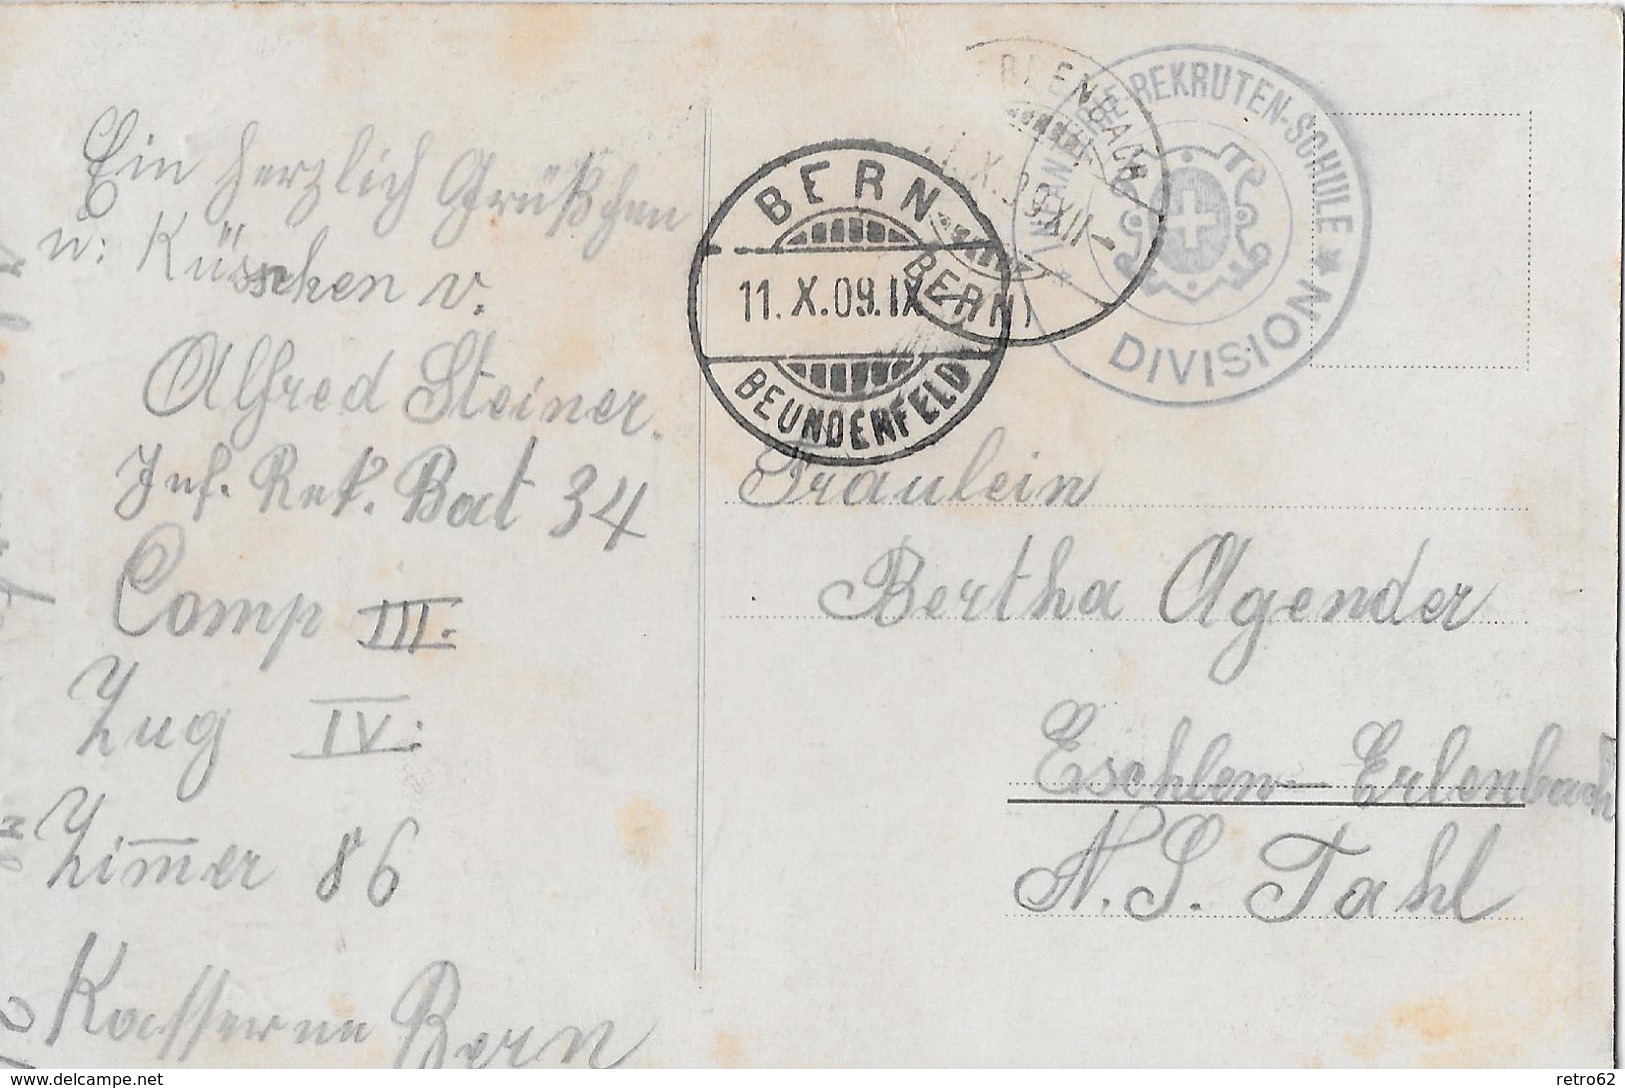 Ein herzlich Grüßchen
u: Küsschen v.
Alfred Steiner.
Inf. Rek. Bat 34
Comp III.
Zug IV.
Zimmer 86
Kasserne Bern
BERN
11. X. 09. IX
BEUNDENFELD
RLENBACH
X. 09 XII –
(BERN)
INFANTERIE-REKRUTEN-SCHULE
DIVISION
Fräulein
Bertha Agender
Eschlen– Erlenbach
N. S. Tahl
© delcampe.net
retro62